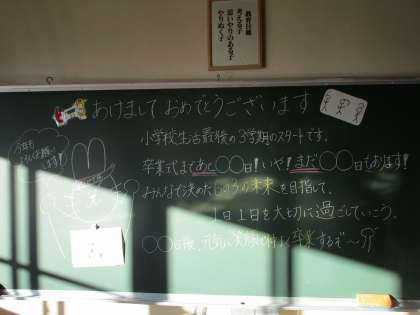 教育目標
考える子
思いやりのある子
やりぬく子
あけまして おめでとうございます
小学校生活最後の3学期のスタートです。
卒業式まであと〇〇日!いや!まだ〇〇日もあります!
みんなで決めた 6の3の未来 を目指して、
1日1日を大切に過ごしていこう。
〇〇日後、元気に笑顔で仲よく卒業するぞ〜!!
今年も
よろしくお願いします!